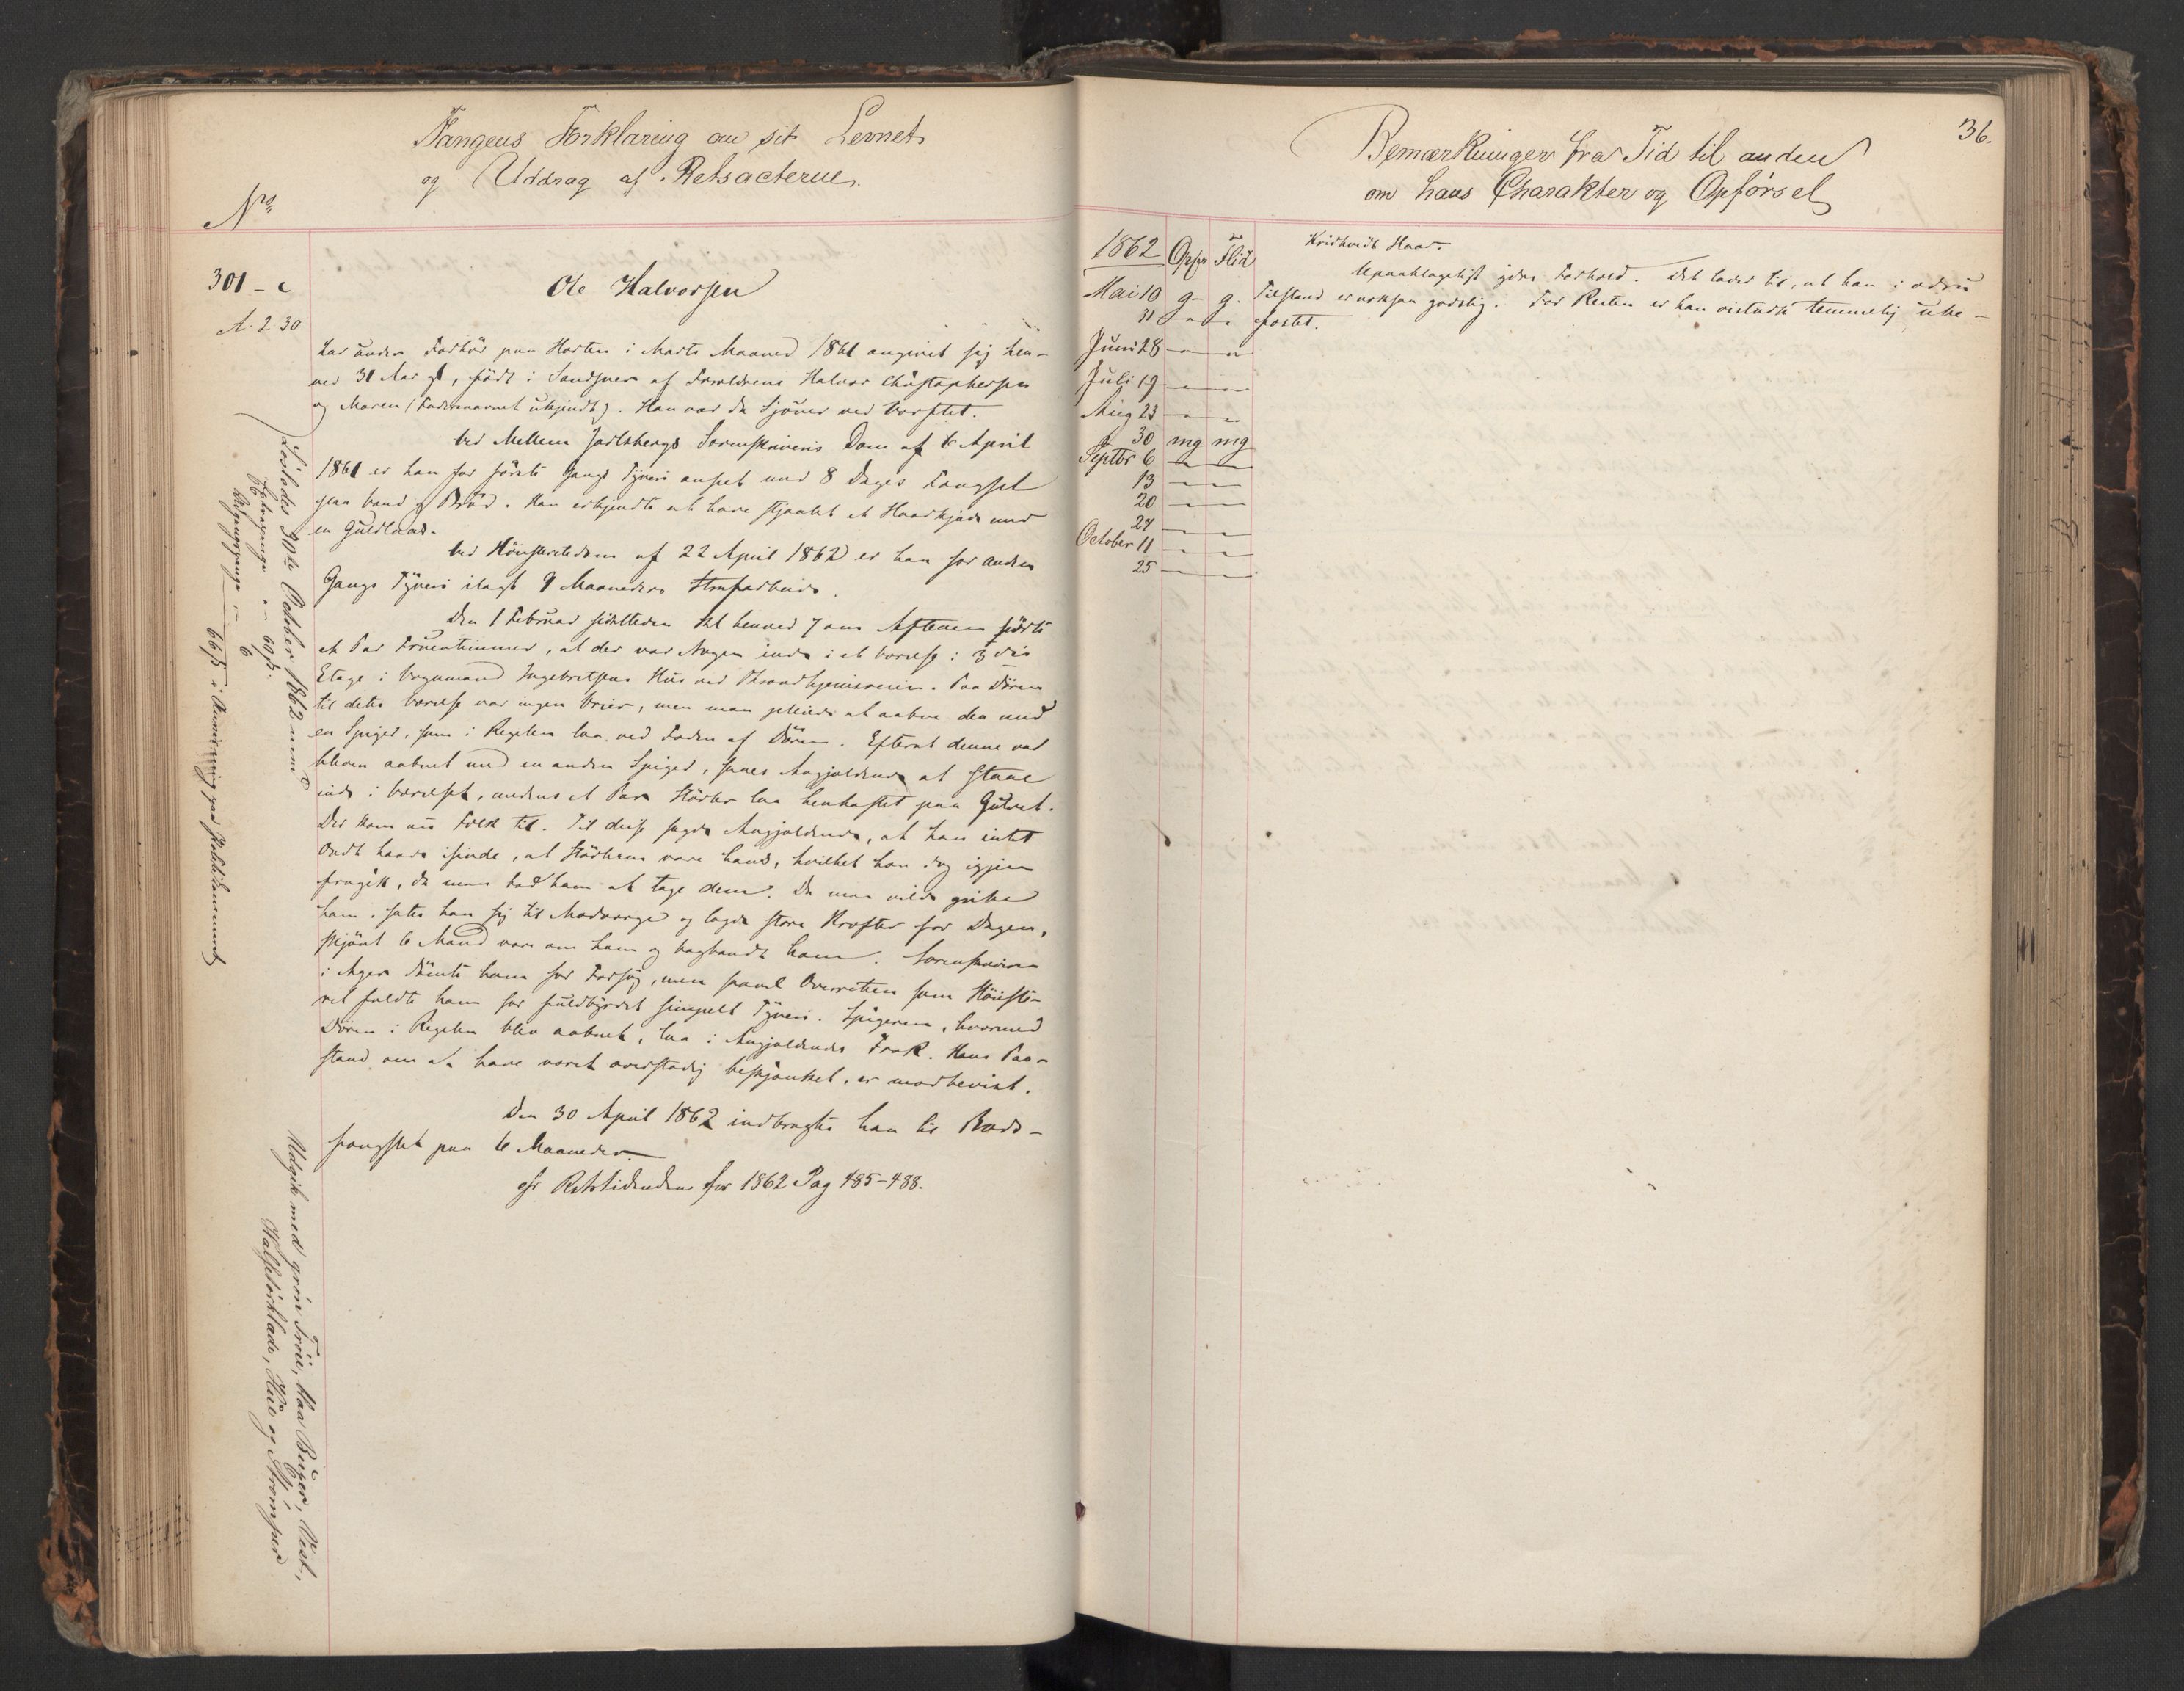 Fangens Forklaring om sit Levnet
og Uddrag af Retsacterne.
No
301 - c
A. 2 30
Ole Halvorsen
har under Forhör paa Horten i Marts Maaned 1861 angivet sig hen-
ved 31 Aar gl, född i Sandsver af Forældrene Halvor Christophersen
og Maren (Fadernavnet ukjendt). Han var da Sjöuer ved Verftet.
Ved Mellem Jarlsbergs Sorenskriveris Dom af 6 April
1861 er han for förste Gangs Tyveri anseet med 8 Dages Fængsel
paa Vand og Bröd. Han erkjendte at have stjaalet et Haarkjæde med
en Guldlaas.
Ved Höiesteretsdom af 22 April 1862 er han for anden
Gangs Tyveri ilagt 9 Maaneders Strafarbeide.
Den 1 Februar sidstleden Kl henved 7 om Aftenen hörte
et Par Fruentimmer, at der var Nogen inde i et Værelse i 3die
Etage i Vognmand Ingebretsens Hus ved Throndhjemsveien. Paa Dören
til dette Værelse var ingen Vrier, men man pleiede at aabne den med
en Spiger, som i Regelen laa ved Foden af Dören. Efterat denne var
bleven aabnet med en anden Spiger, saaes Angjældende at staae
inde i Værelset, medens et Par Störler laa henkastet paa Gulvet.
Der kom nu Folk til. Til disse sagde Angjældende, at han intet
Ondt havde isinde, at Störlerne vare hans, hvilket han dog igjen
fragik, da man bad ham at tage dem. Da man vilde gribe
ham, satte han sig til Modværge og lagde store Kræfter for Dagen,
skjönt 6 Mand vare om ham og bagbandt ham. Sorenskriveren
i Ager dömte ham for Forsög, men saavel Overretten som Höieste-
ret fældte ham for fuldbyrdet simpelt Tyveri. Spigeren, hvormed
Dören i Regelen blev aabnet, laa i Angjældendes Frak. Hans Paa-
stand om at have været overstadig beskjænket, er modbevist.
Den 30 April 1862 indbragtes han til Bods-
fængslet paa 6 Maaneder.
cfr Retstidenden for 1862 Pag 485-488.
Löslades 30te October 1862 med
Extrapenge " - 60 ß.
Afgangspenge " - 6
66 ß i Anviisning paa Politikammeret
Udgik med grön Tröie, blaa Buxer, Vest,
Halstörklæde, Hue og Strömper
36.
Bemærkninger fra Tid til anden
om hans Charakter og Opförsel
1862 Opfr Flid
Mai 10 g - g.
31 " "
Juni 28 " "
Juli 19 " "
Aug 23 " "
30 mg mg
Septbr 6 " "
13 " "
20 " "
27 " "
October 11 " "
25 " "
Kridhvidt Haar.
Upaaklageligt ydre Forhold. Det lader til, at han i ædru
Tilstand er noksaa godslig. For Resten er han vistnok temmelig ube-
fæstet.